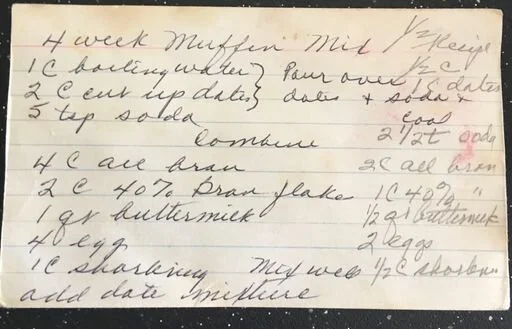 4 week Muffin Mix 1/2 Recipe
1 C boiling water } Pour over 1/2 C
2 C cut up dates } dates + soda + 1 C dates
5 tsp soda cool 2 1/2 t soda
Combine
4 C all bran 2 C all bran
2 C 40% Bran flake 1 C 40% "
1 qt buttermilk 1/2 qt buttermilk
4 egg 2 eggs
1 C shortning Mix well 1/2 C shortnin
add date mixture